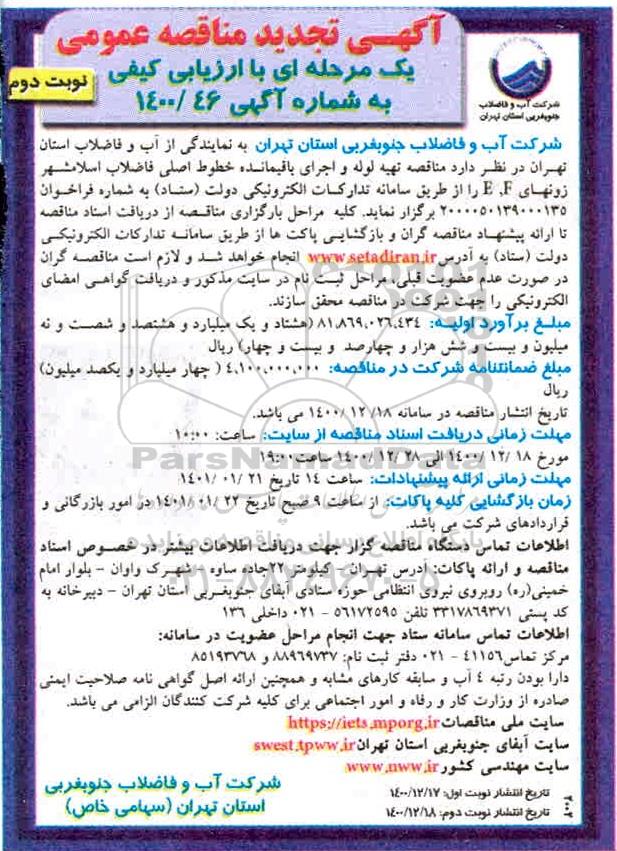 آگهـی تجدید مناقصه عمومی
یک مرحله ای با ارزیابی کیفی
به شماره آگهی ۴۶ /۱۴۰۰
نوبت دوم
شرکت آب و فاضلاب
جنوبغربی استان تهران
شرکت آب و فاضلاب جنوبغربی استان تهران به نمایندگی از آب و فاضلاب استان
تهران در نظر دارد مناقصه تهیه لوله و اجرای باقیمانده خطوط اصلی فاضلاب اسلامشهر
زونهای E ,F را از طریق سامانه تدارکات الکترونیکی دولت (ستاد) به شماره فراخوان
۲۰۰۰۰۵۰۱۳۹۰۰۰۱۳۵ برگزار نماید. کلیه مراحل بارگزاری مناقصه از دریافت اسناد مناقصه
تا ارائه پیشنهاد مناقصه گران و بازگشایی پاکت ها از طریق سامانه تدارکات الکترونیکی
دولت (ستاد) به آدرس www.setadiran.ir انجام خواهد شد و لازم است مناقصه گران
در صورت عدم عضویت قبلی، مراحل ثبت نام در سایت مذکور و دریافت گواهی امضای
الکترونیکی را جهت شرکت در مناقصه محقق سازند.
مبلغ برآورد اولیه: ۸۱،۸۶۹،۰۲۶،۴۳۴ (هشتاد و یک میلیارد و هشتصد و شصت و نه
میلیون و بیست و شش هزار و چهارصد و بیست و چهار) ریال
مبلغ ضمانتنامه شرکت در مناقصه: ۴،۱۰۰،۰۰۰،۰۰۰ ( چهار میلیارد و یکصد میلیون)
ریال
تاریخ انتشار مناقصه در سامانه ۱۸/ ۱۲/ ۱۴۰۰ می باشد.
مهلت زمانی دریافت اسناد مناقصه از سایت: ساعت: ۱۰:۰۰
مورخ ۱۸ /۱۲/ ۱۴۰۰ الی ۲۸ /۱۲/ ۱۴۰۰ ساعت۱۹:۰۰
مهلت زمانی ارائه پیشنهادات: ساعت ۱۴ تاریخ ۲۱ /۰۱ /۱۴۰۱
زمان بازگشایی کلیه پاکات: از ساعت ۹ صبح تاریخ ۲۲ /۰۱ /۱۴۰۱ در امور بازرگانی و
قراردادهای شرکت می باشد.
اطلاعات تماس دستگاه مناقصه گزار جهت دریافت اطلاعات بیشتر در خصوص اسناد
مناقصه و ارائه پاکات: آدرس تهران - کیلومتر ۲۲جاده ساوه - شهرک واوان - بلوار امام
خمینی(ره) روبروی نیروی انتظامی حوزه ستادی آبفای جنوبغربی استان تهران - دبیرخانه به
کد پستی ۳۳۱۷۸۶۹۳۷۱ تلفن ۵۶۱۷۲۵۹۵ - ۰۲۱ داخلی ۱۳۶
اطلاعات تماس سامانه ستاد جهت انجام مراحل عضویت در سامانه:
مرکز تماس۴۱۱۵۶ - ۰۲۱ دفتر ثبت نام: ۸۸۹۶۹۷۳۷ و ۸۵۱۹۳۷۶۸
دارا بودن رتبه ۴ آب و سابقه کارهای مشابه و همچنین ارائه اصل گواهی نامه صلاحیت ایمنی
صادره از وزارت کار و رفاه و امور اجتماعی برای کلیه شرکت کنندگان الزامی می باشد.
سایت ملی مناقصات https://iets.mporg.ir
سایت آبفای جنوبغربی استان تهران swest.tpww.ir
سایت مهندسی کشور www.nww.ir
تاریخ انتشار نوبت اول: ۱۴۰۰/۱۲/۱۷
تاریخ انتشار نوبت دوم: ۱۴۰۰/۱۲/۱۸
شرکت آب و فاضلاب جنوبغربی
استان تهران (سهامی خاص)
۲۰۰۲
ParsNamadData
پایگاه اطلاع رسانی مناقصه و مزایده
۰۲۱-۸۸۳۴۹۶۷۰-۵